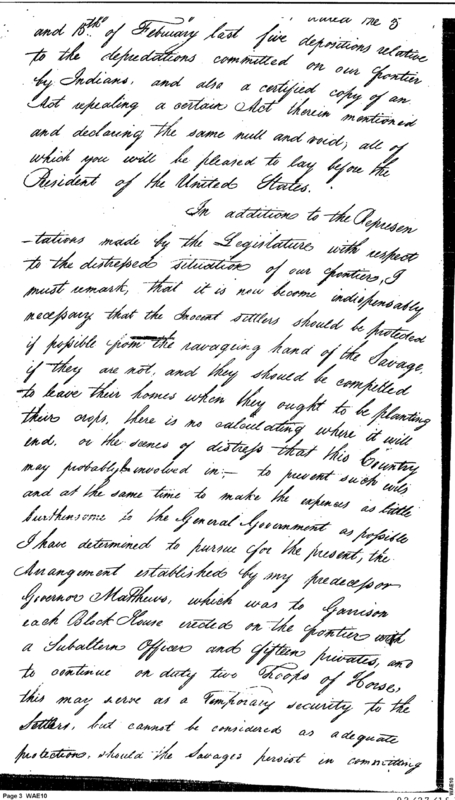 No 5
and 15th of February last five depositions relative
to the depredations committed on our frontier
by Indians, and also a certified copy of an
Act repealing a certain Act therein mentioned
and declaring the same null and void, all of
which you will be pleased to lay before the
President of the United States.
In addition to the Represen
-tations made by the Legislature with respect
to the distressed situation of our frontiers, I
must remark, that it is now become indispensably
necessary that the Inocent settlers should be protected
if possible from the ravaging hand of the Savage,
if they are not, and they should be compelled
to leave their homes when they ought to be planting
their crops, there is no calculating where it will
end. or the scenes of distress that this Country
may probably be involved in:— to prevent such evils
and at the same time to make the expences as little
burthensome to the General Government as possible
I have determined to pursue for the present, the
Arrangement established by my predecessor
Governor Matthews, which was to Garrison
each Block House erected on the frontier with
a Subaltern Officer and fifteen privates, and
to continue on duty two Troops of Horse,
this may serve as a Temporary security to the
Settlers, but cannot be considered as adequate
protection, should the Savages persist in committing
Page 3 WAE10
WAE10